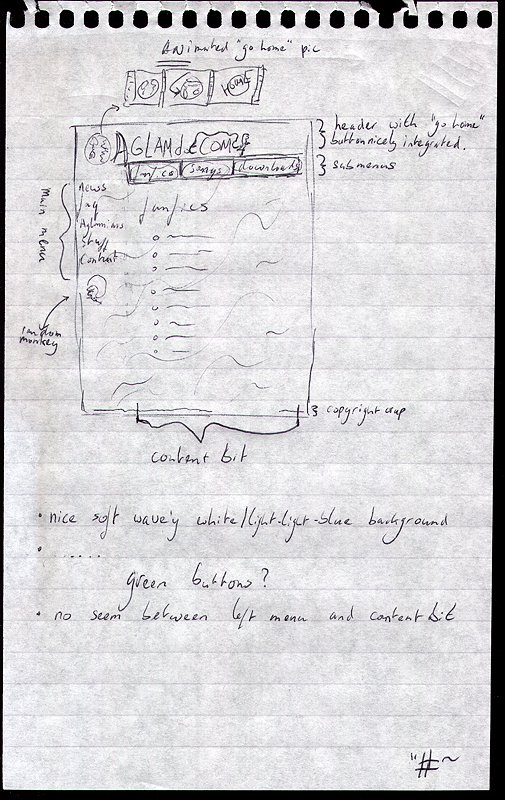 Animated "go home" pic
HOME
header with "go home"
button nicely integrated.
AGLAMd.COM
submenus
songs downloads
news
faq
fanfics
Stuff
Content
main menu
random
monkey
copyright crap
content bit
• nice soft wavey white/light-light-blue background
• ......
green buttons?
• no seem between left menu and content bit
"#~